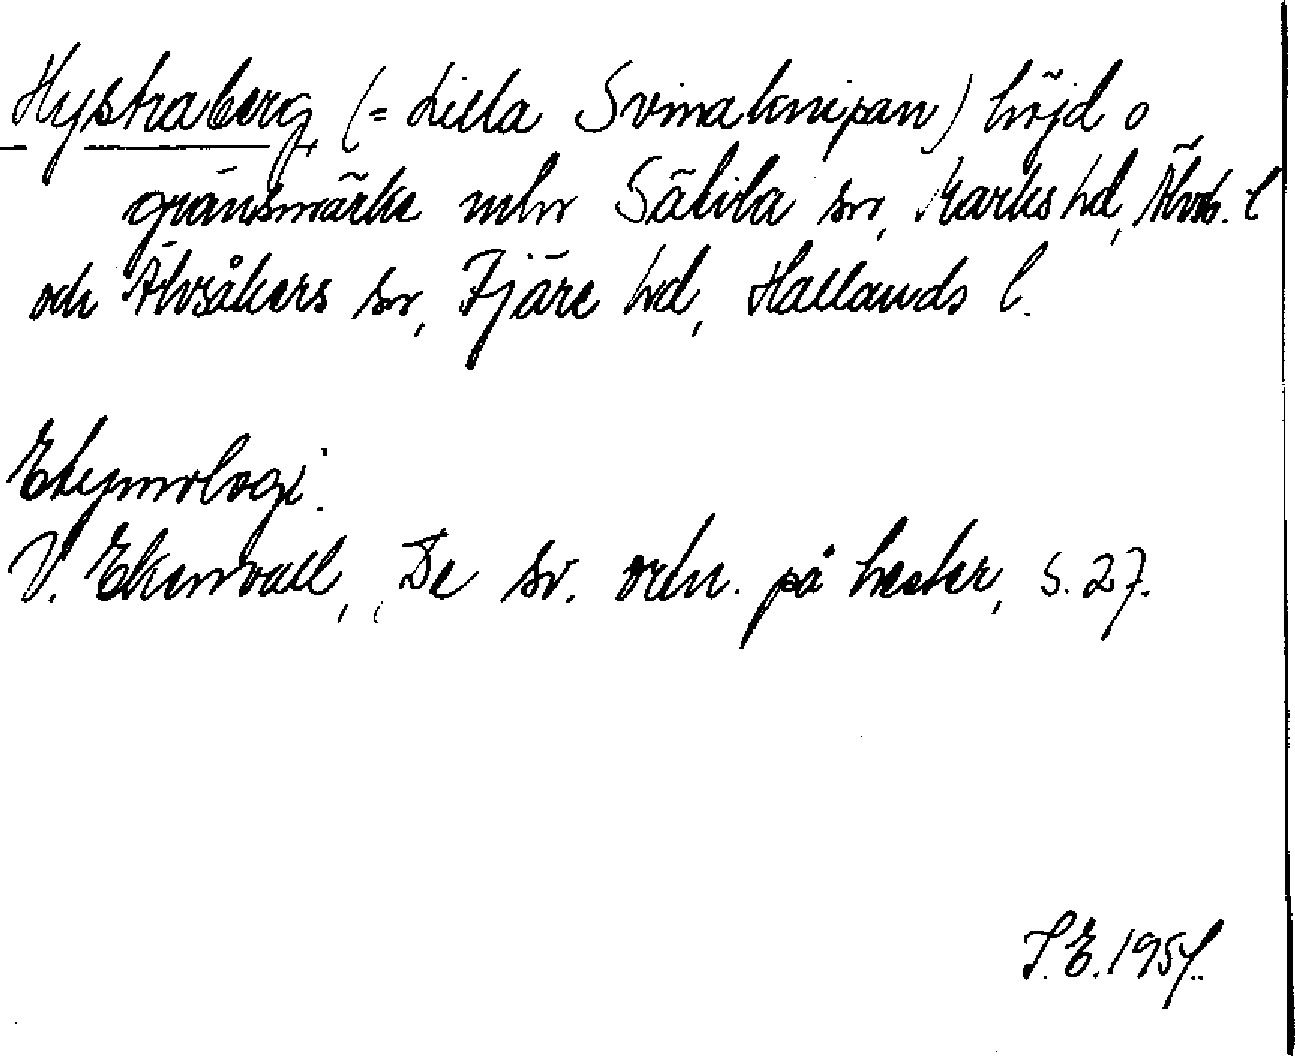 Hystraberg, (= Lilla Svinaknipan) höjd o
gränsmärke mln Sätila sn, Marks hd, Älvsb. l
och Älvsåkers sn, Fjäre hd, Hallands l.
Etymologi.
V. Ekenvall, De sv. ortn. på hester, s. 27.
S.E. 1957.